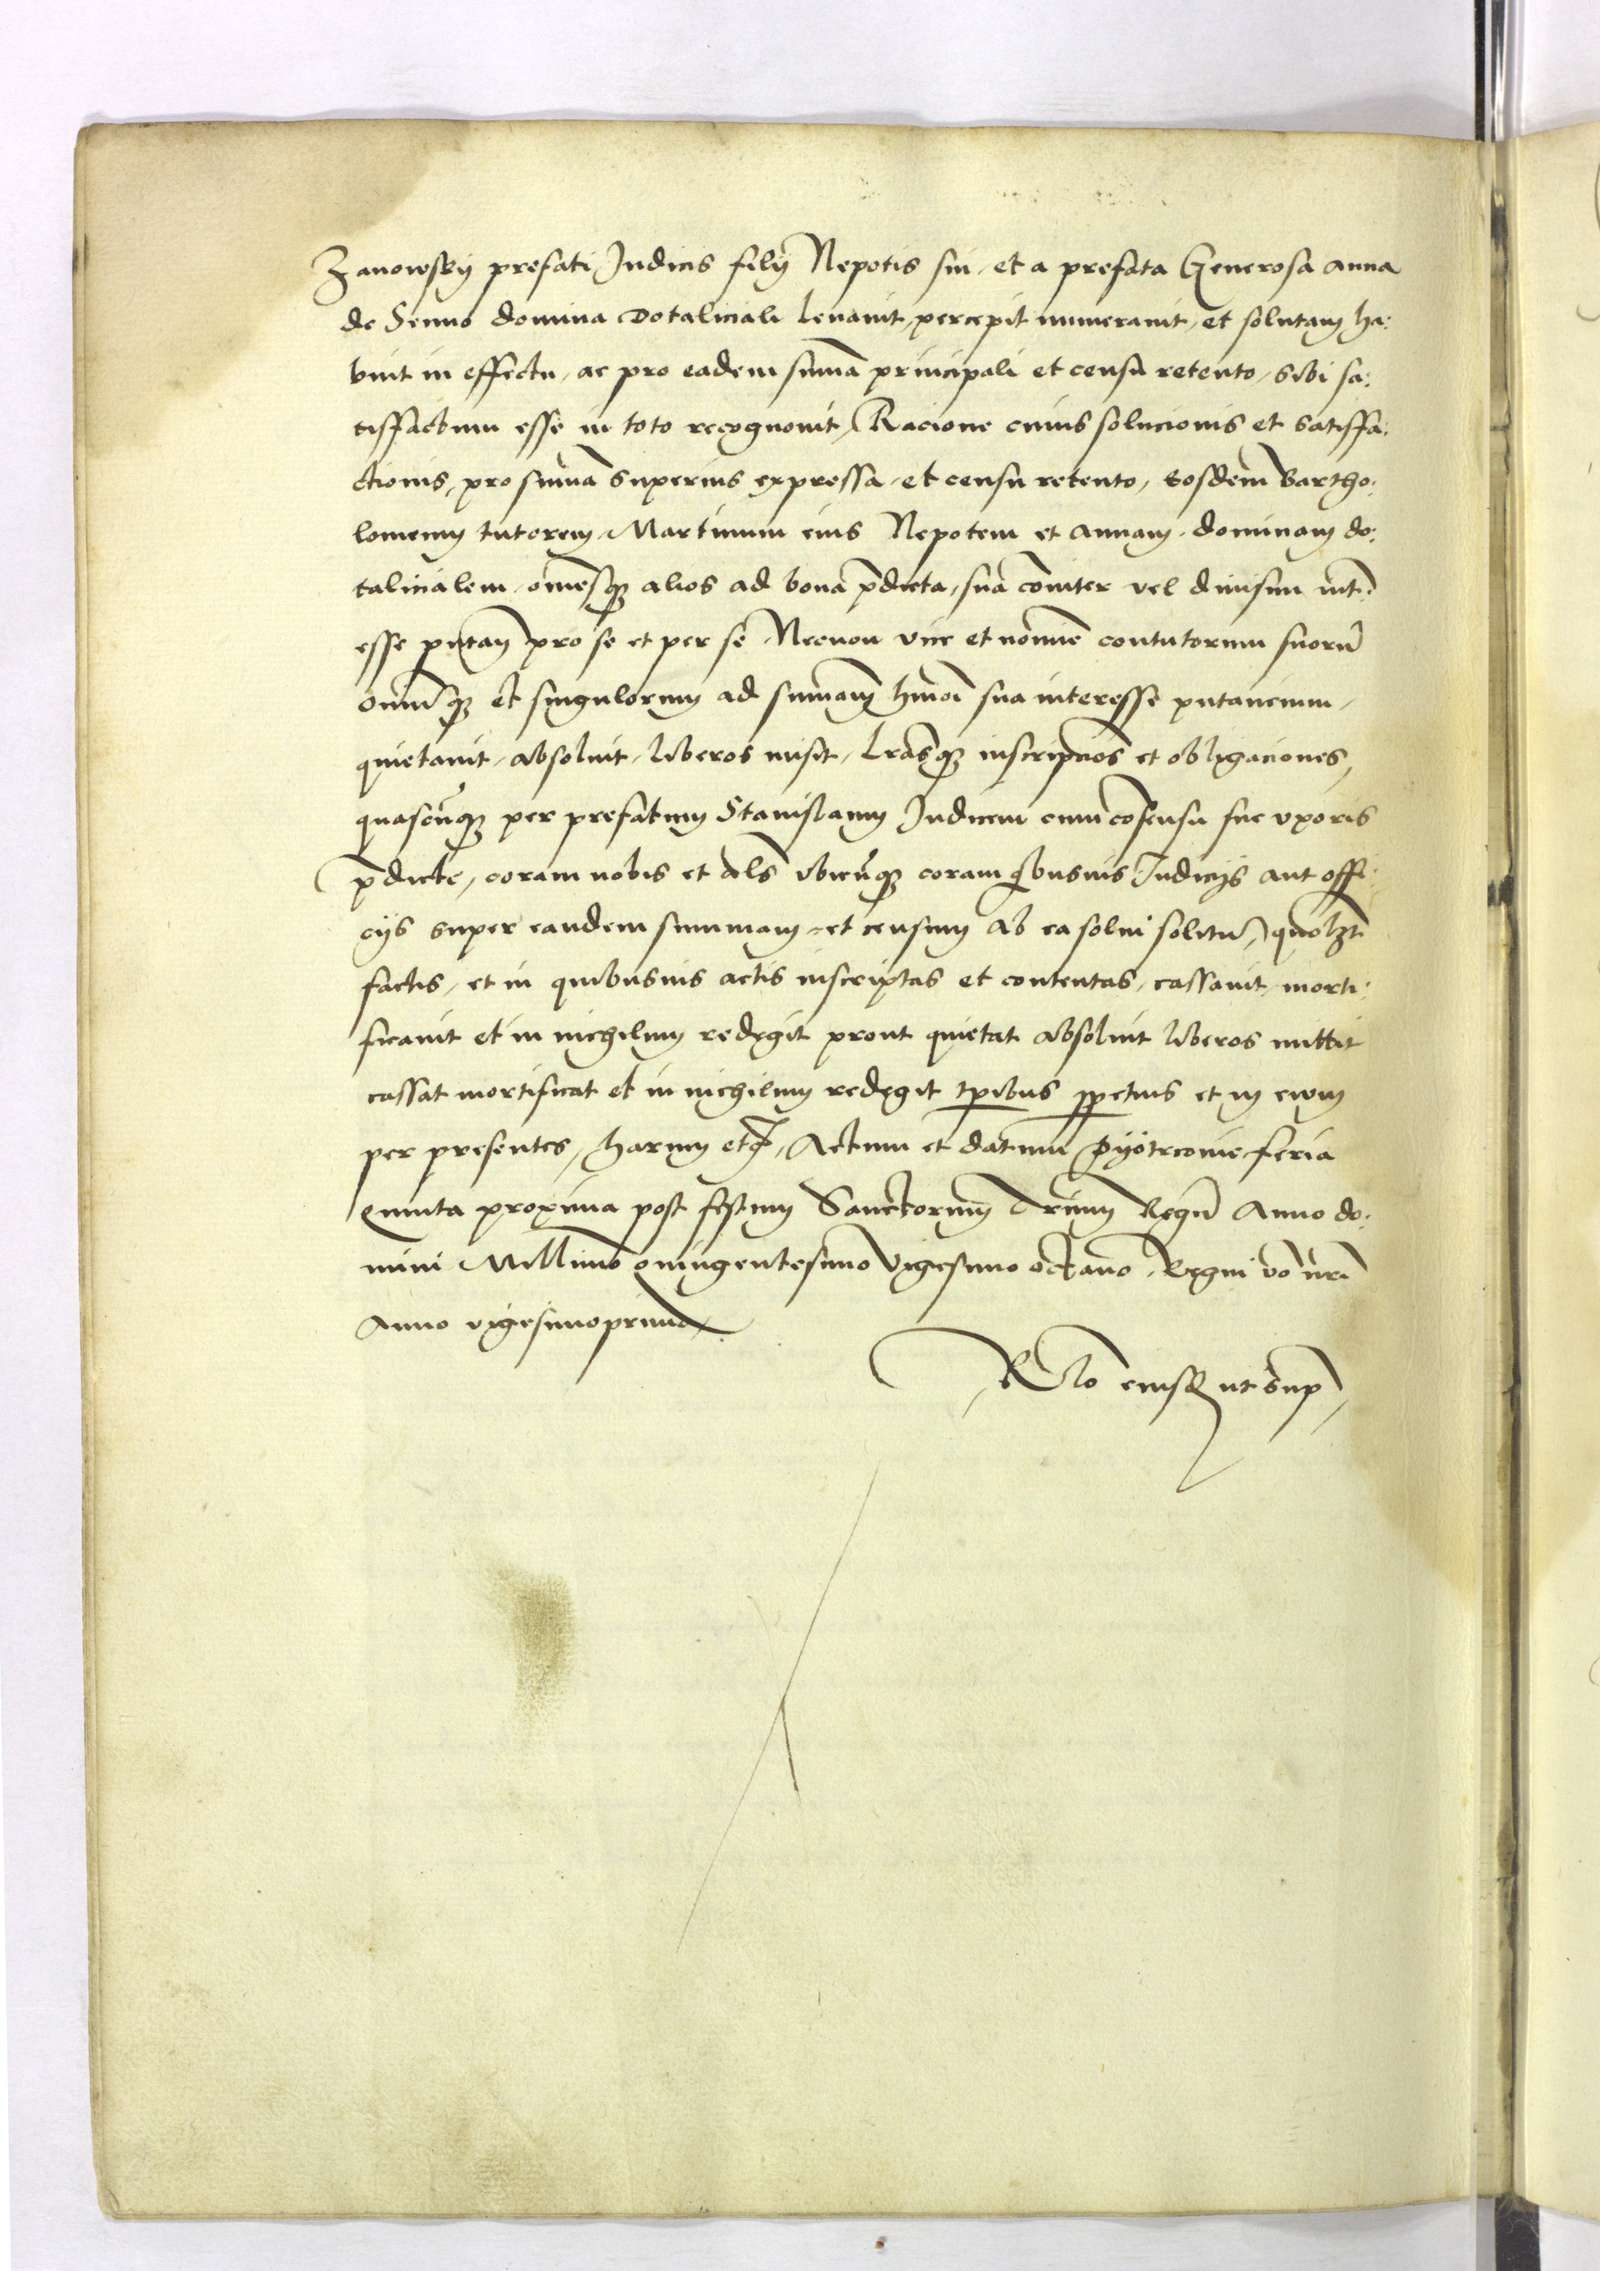 Zanowskij prefati Judicis filij Nepotis sui et a prefata Generosa Anna
de Senno domina dotaliciali levavit, percepit numeravit, et solutam ha:
buit in effectu, ac pro eadem sum̄a principali et censu retento, sibi sa:
tisfactum esse in toto recognovit, Racione cuius solucionis et satisffa:
ctionis, pro sum̄a superius expressa, et censu retento, Eosdem Bartho:
lomeum tutorem, Martinum eius Nepotem et Annam, dominam do:
talicialem, om̄esq₃ alios ad bona p̄dicta, sua com̄iter vel divisim int̄:
esse pūtan̄ pro se et per se Necnon vice et nomīe contutorum suorū
om̄iūq₃ et singulorum ad sum̄am hm̄oi sua interesse putancium,
quietavit, absolvit, liberos misit, Lr̄asq₃ inscripc̄nos et obligaciones,
quascūq₃ per prefatum Stanislaum Judicem cum cōsensu sue uxoris
p̄dicte, coram nobis et al̄s ubicūq₃ coram q̄busvis Judicijs aut offi:
cijs super eandem summam et censum ab ea solvi solitū, quolꝫt
factis, et in quibusvis actis inscriptas et contentas, cassavit, morti:
ficavit et in nichilum redegit prout quietat absolvit liberos mittit
cassat mortificat et in nichilum redegit tp̄ibus ꝑpetuis et in ewum
per presentes, harum etc̄, Actum et datum Pijotrcovie feria
quinta proxima post festum Sanctorum Trium Regū Anno do:
mini Millimo quingentesimo vigesimo octavo, Regni vo n̄ri
Anno vigesimoprimo
Rᵉˡᵒ eiusd ut sup